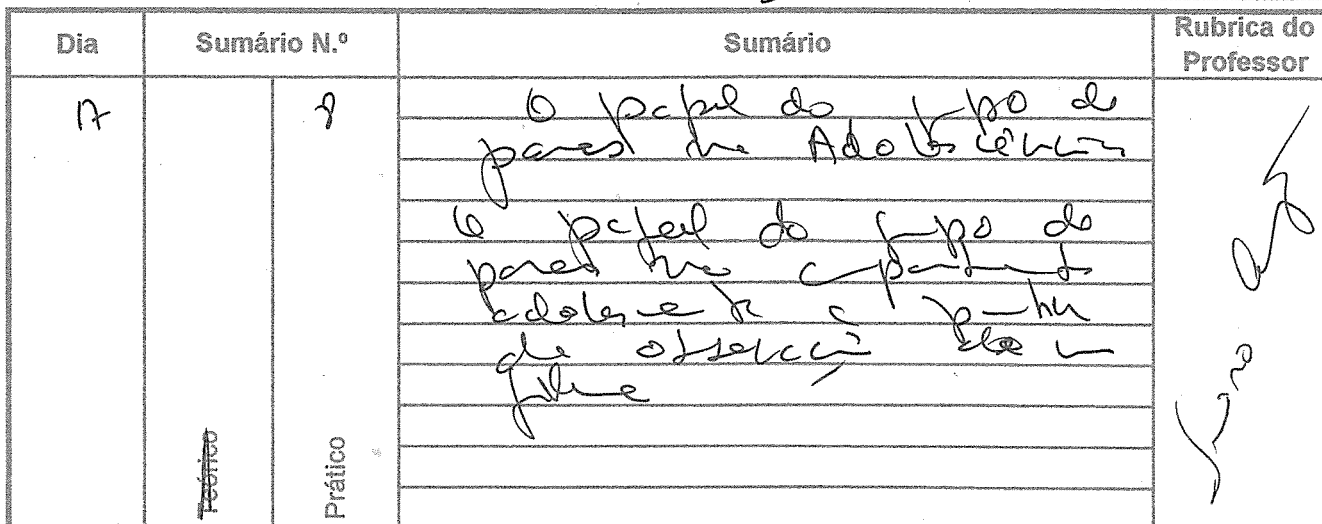 Dia Sumário N.º Sumário Rubrica do Professor
17
O papel do grupo de
pares na Adolescência
O papel do grupo de
pares no comportamento
adolescente a partir
da observação de um
filme
Teórico
Prático